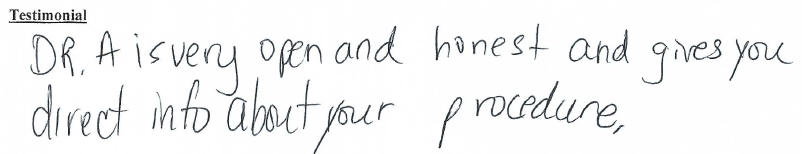 Testimonial
DR. A is very open and honest and gives you
direct info about your procedure,